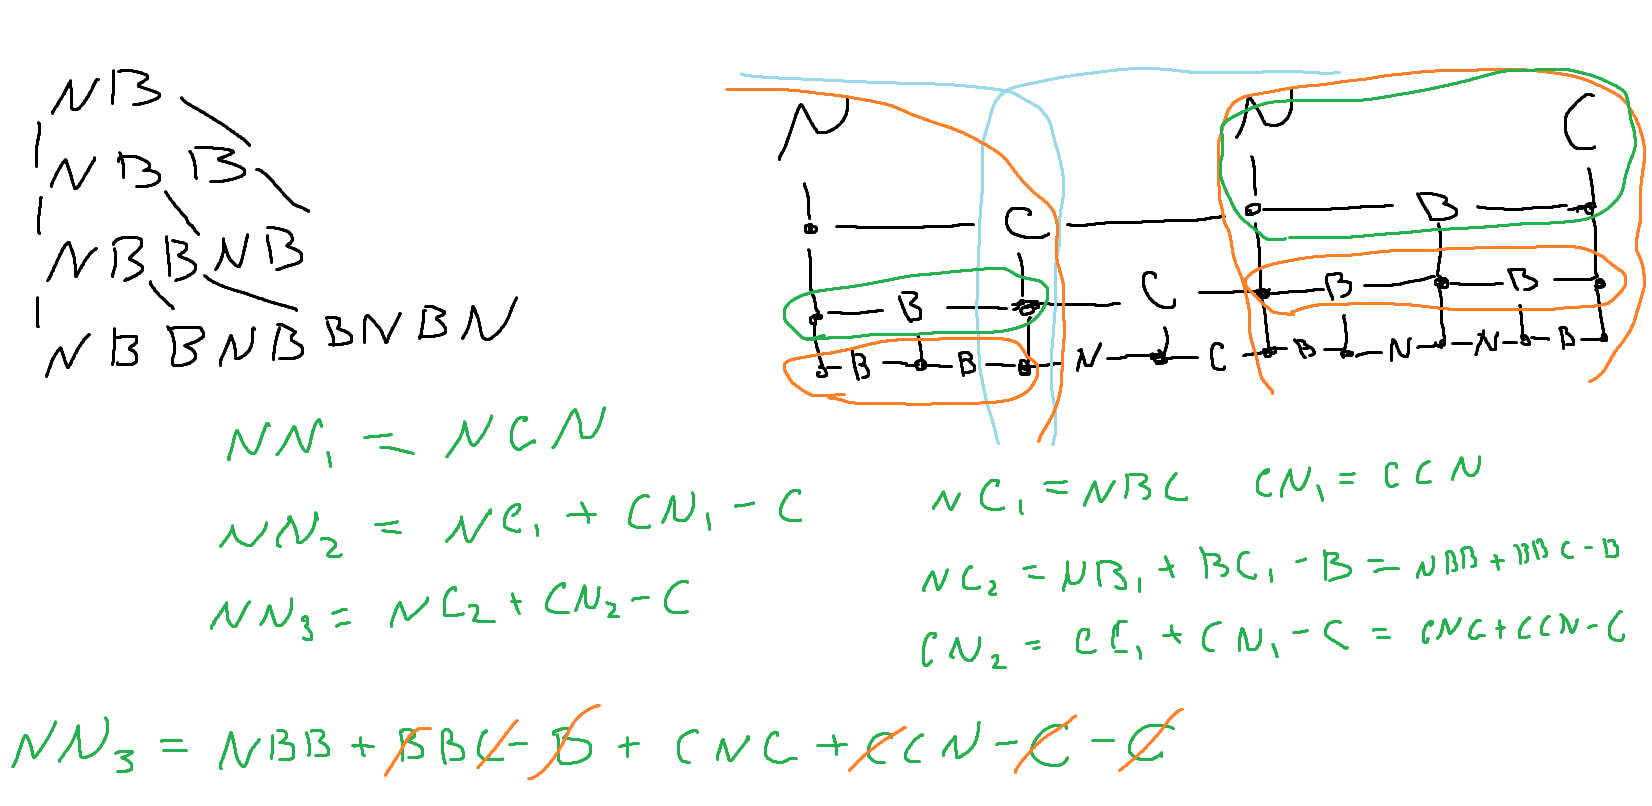 NB
NBB
NBBNB
NBBNBBNBN
N N C
C B
B C B B
B B N C B N N B
NN₁ = NCN
NN₂ = NC₁ + CN₁ - C
NN₃ = NC₂ + CN₂ - C
NC₁ = NBC CN₁ = CCN
NC₂ = NB₁ + BC₁ - B = NBB + BBC - B
CN₂ = CC₁ + CN₁ - C = CNC + CCN - C
NN₃ = NBB + BBC - B + CNC + CCN - C - C